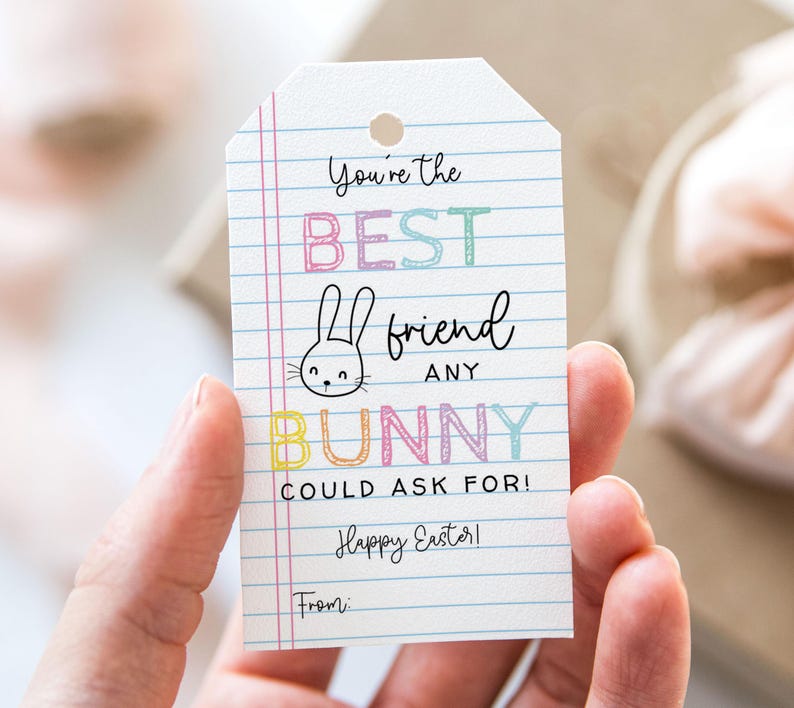 You're the
BEST
friend
ANY
BUNNY
COULD ASK FOR!
Happy Easter!
From: